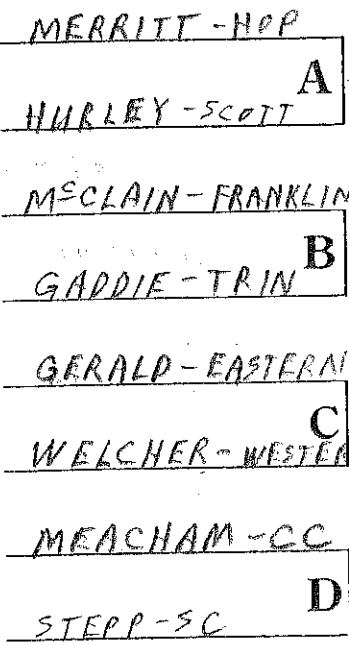 MERRITT - HOP
A
HURLEY - SCOTT
McCLAIN - FRANKLIN
B
GADDIE - TRIN
GERALD - EASTERN
C
WELCHER - WESTER
MEACHAM - CC
D
STEPP - SC